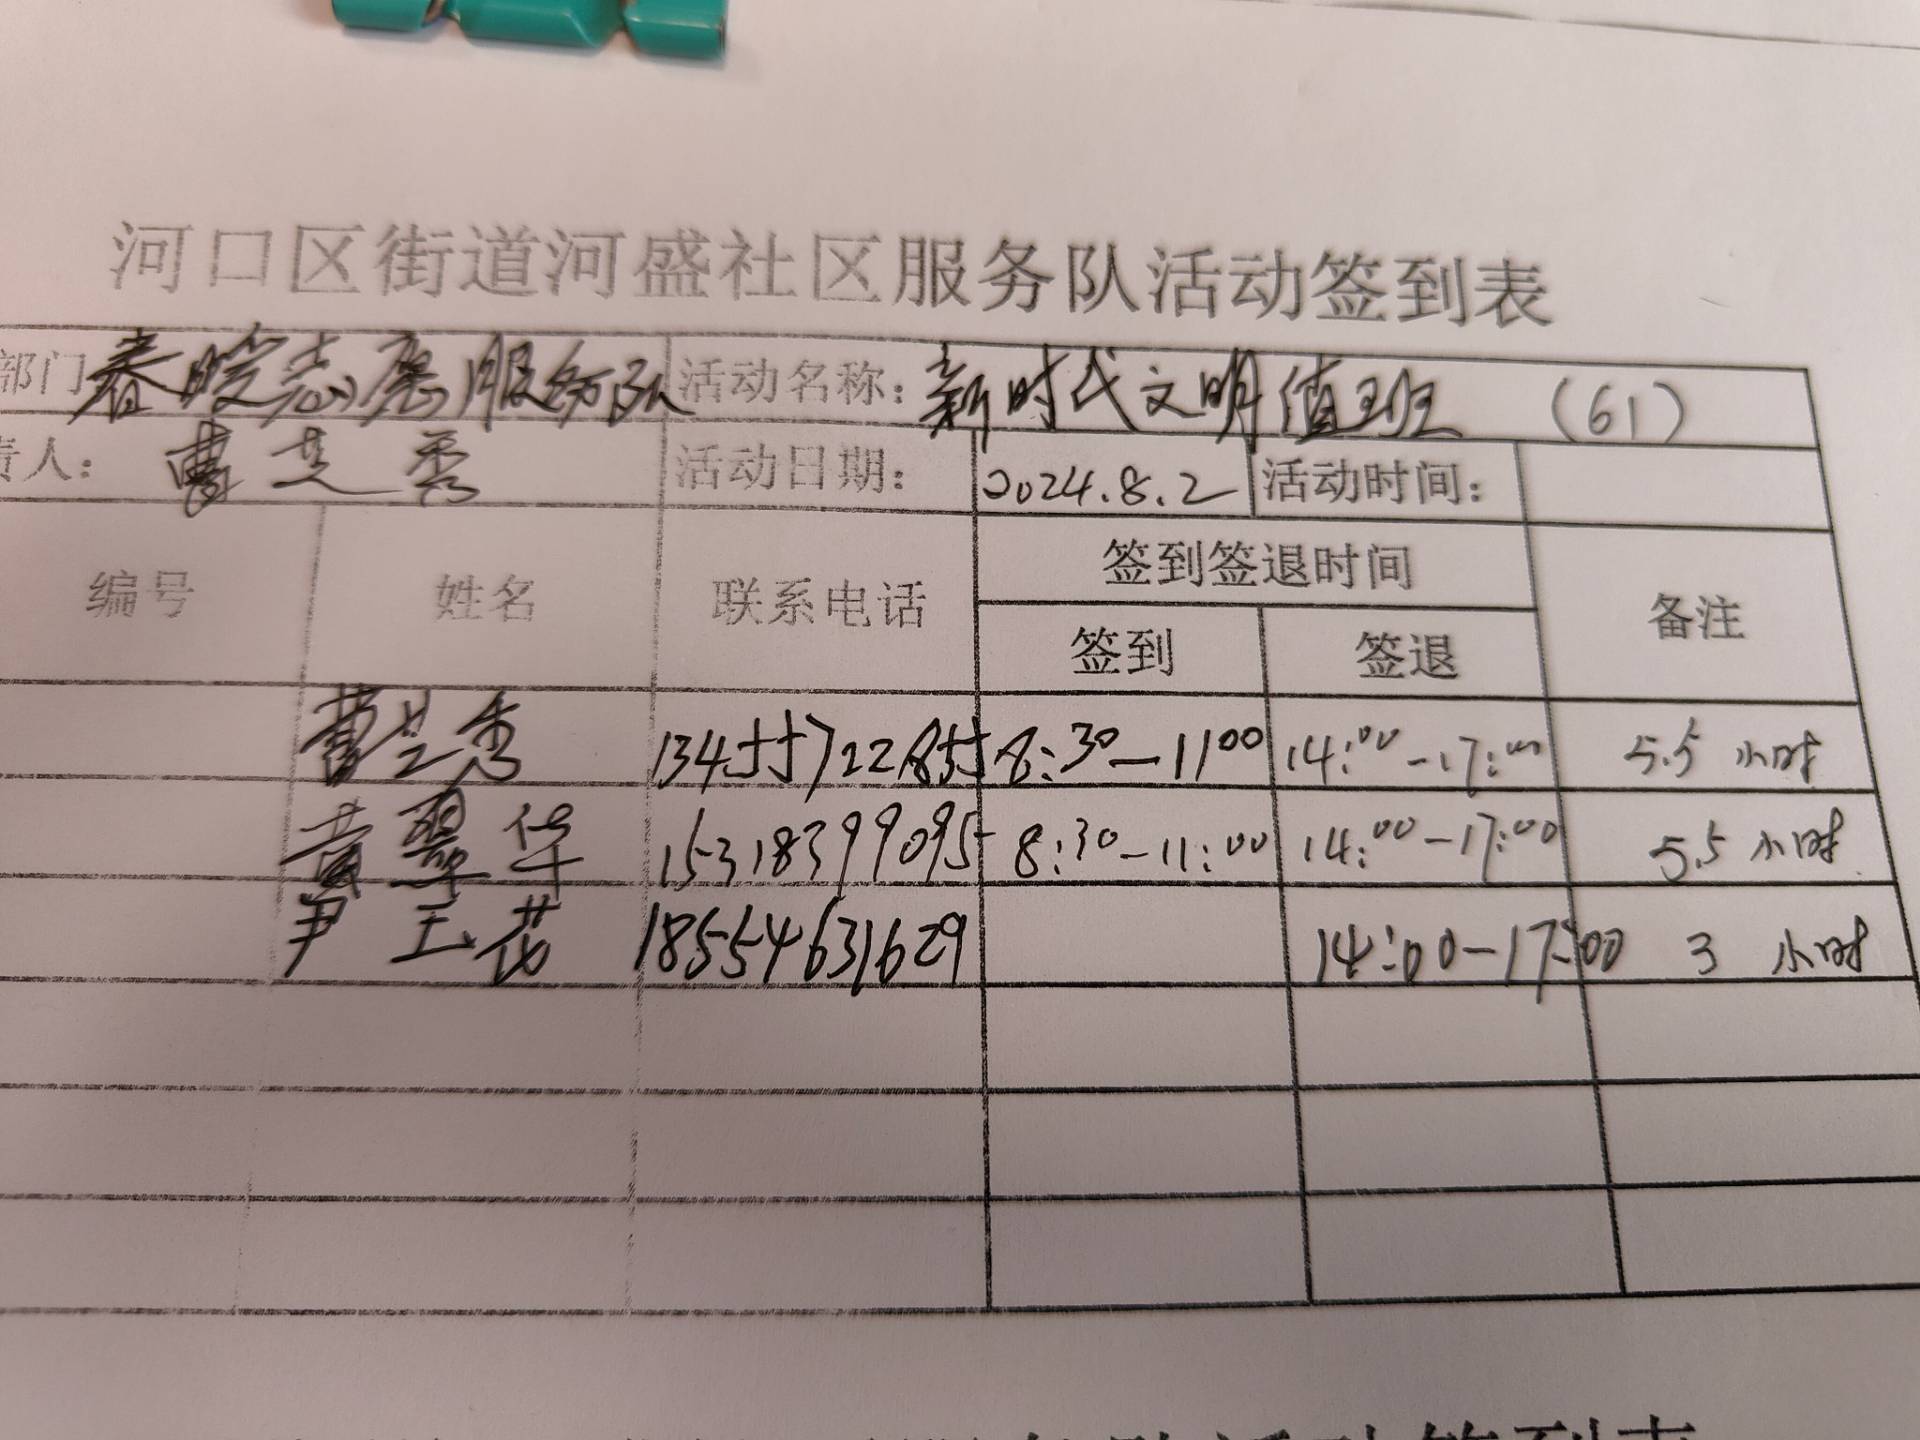 河口区街道河盛社区服务队活动签到表
部门 春晓志愿服务队 活动名称: 新时代文明值班 (61)
责人: 曹芝秀 活动日期: 2024.8.2 活动时间:
编号 姓名 联系电话 签到签退时间 备注
签到 签退
曹芝秀 13455722855 8:30-11:00 14:00-17:00 5.5 小时
黄翠华 15318399095 8:30-11:00 14:00-17:00 5.5 小时
尹玉花 18554631629 14:00-17:00 3 小时
活动签到表